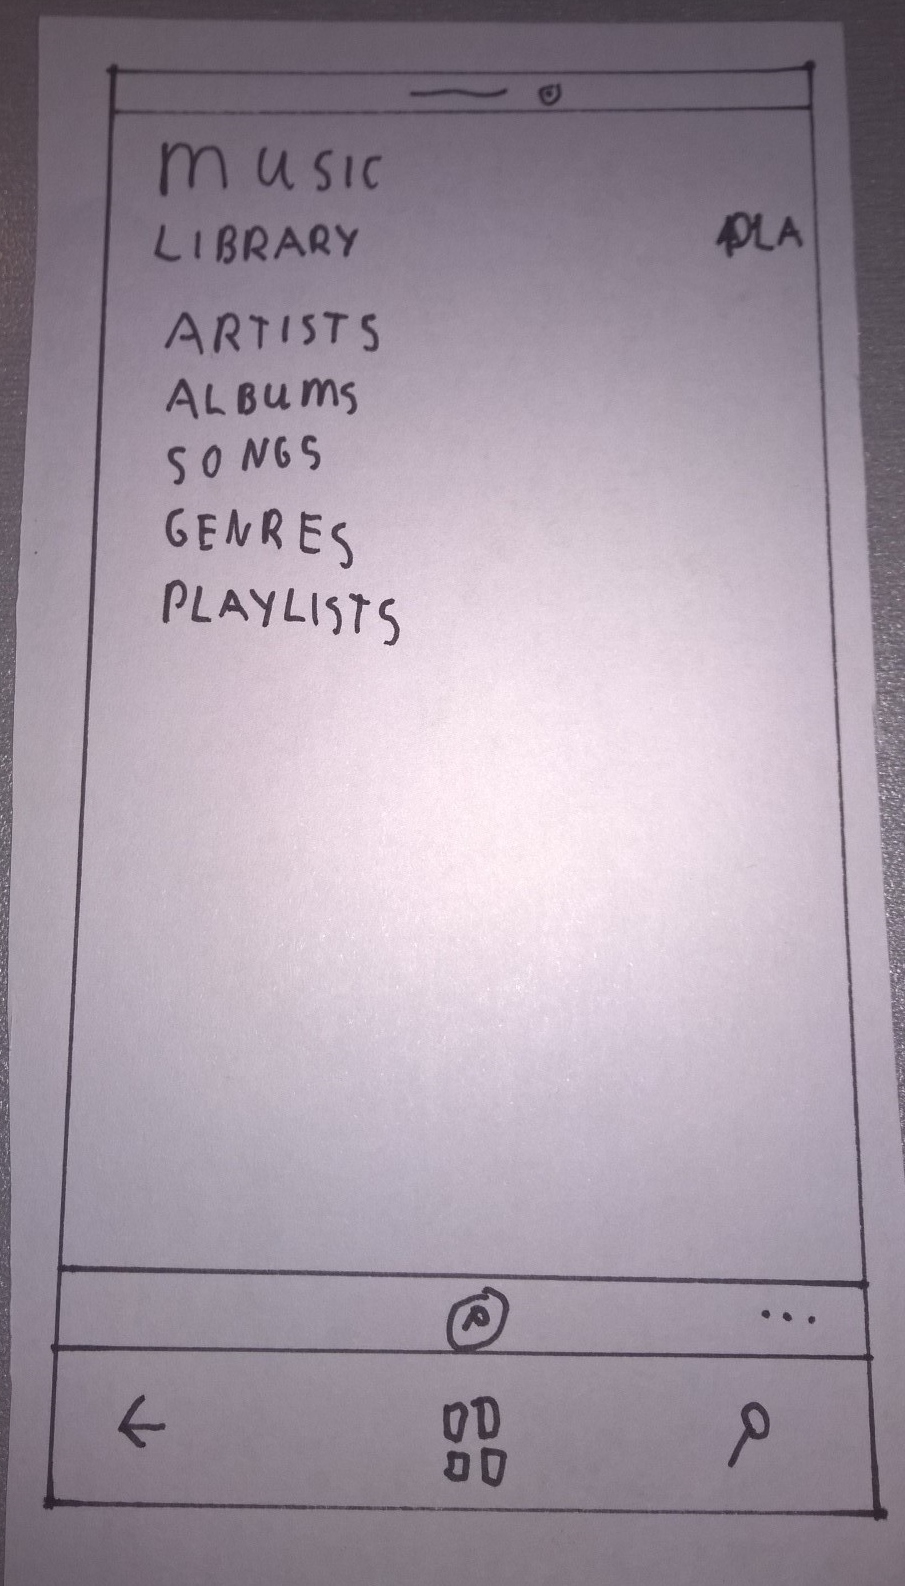 MUSIC
LIBRARY PLA
ARTISTS
ALBUMS
SONGS
GENRES
PLAYLISTS
...